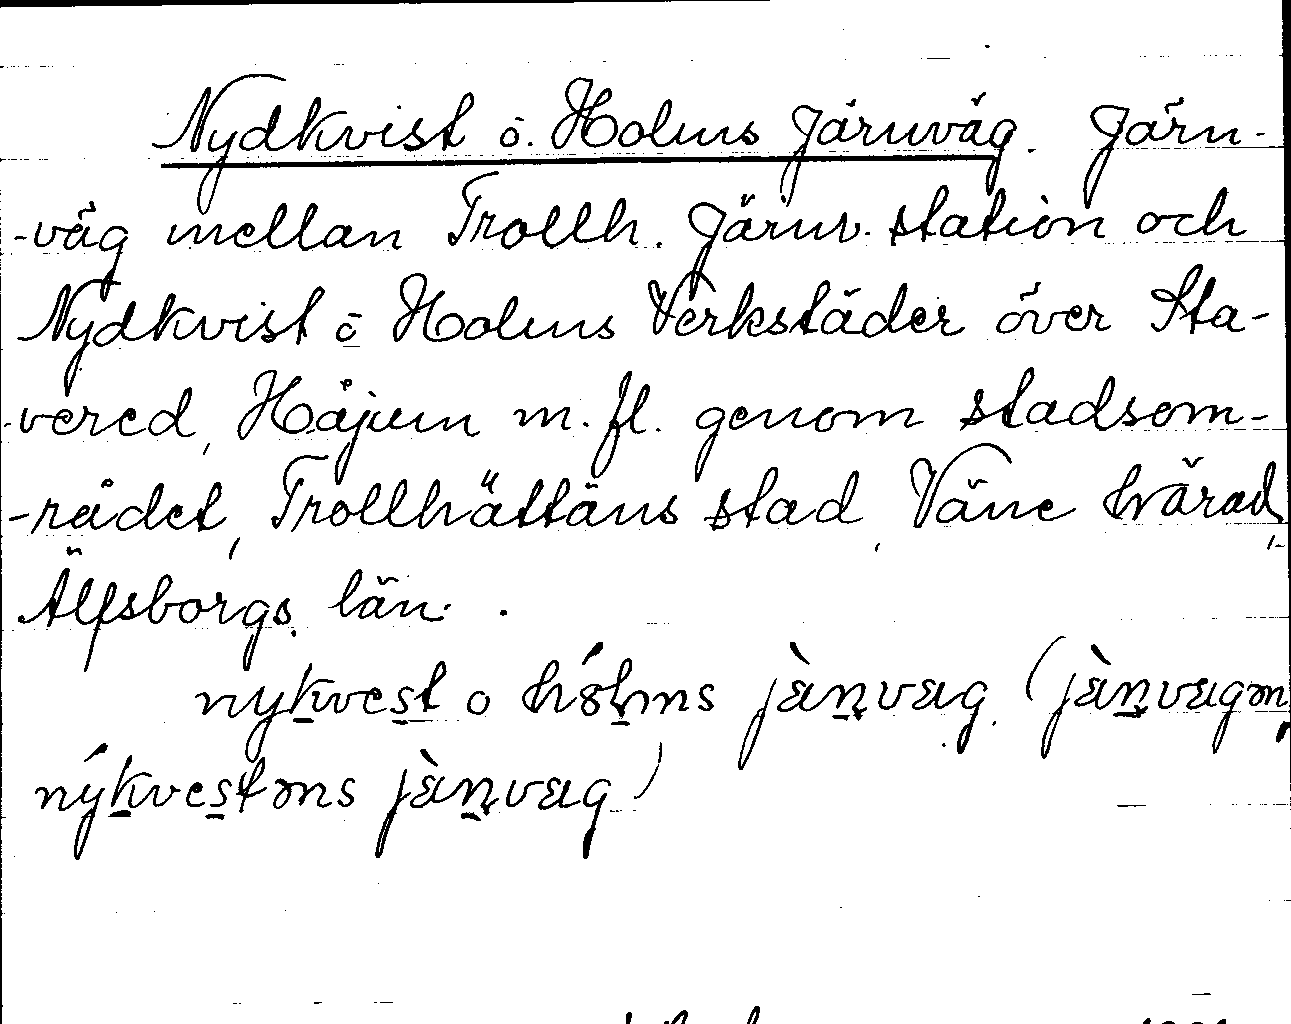 Nydkvist o. Holms Järnväg. Järn-
-väg mellan Trollh. Järnv. station och
Nydkvist o Holms Verkstäder över Sta-
-vered, Håjum m. fl. genom stadsom-
-rådet, Trollhättans stad, Väne härad,
Älfsborgs län.
nykvest o hólms jæ̀ṇvæg (jæ̀ṇvægən,
nýkvestəns jæ̀ṇvæg)